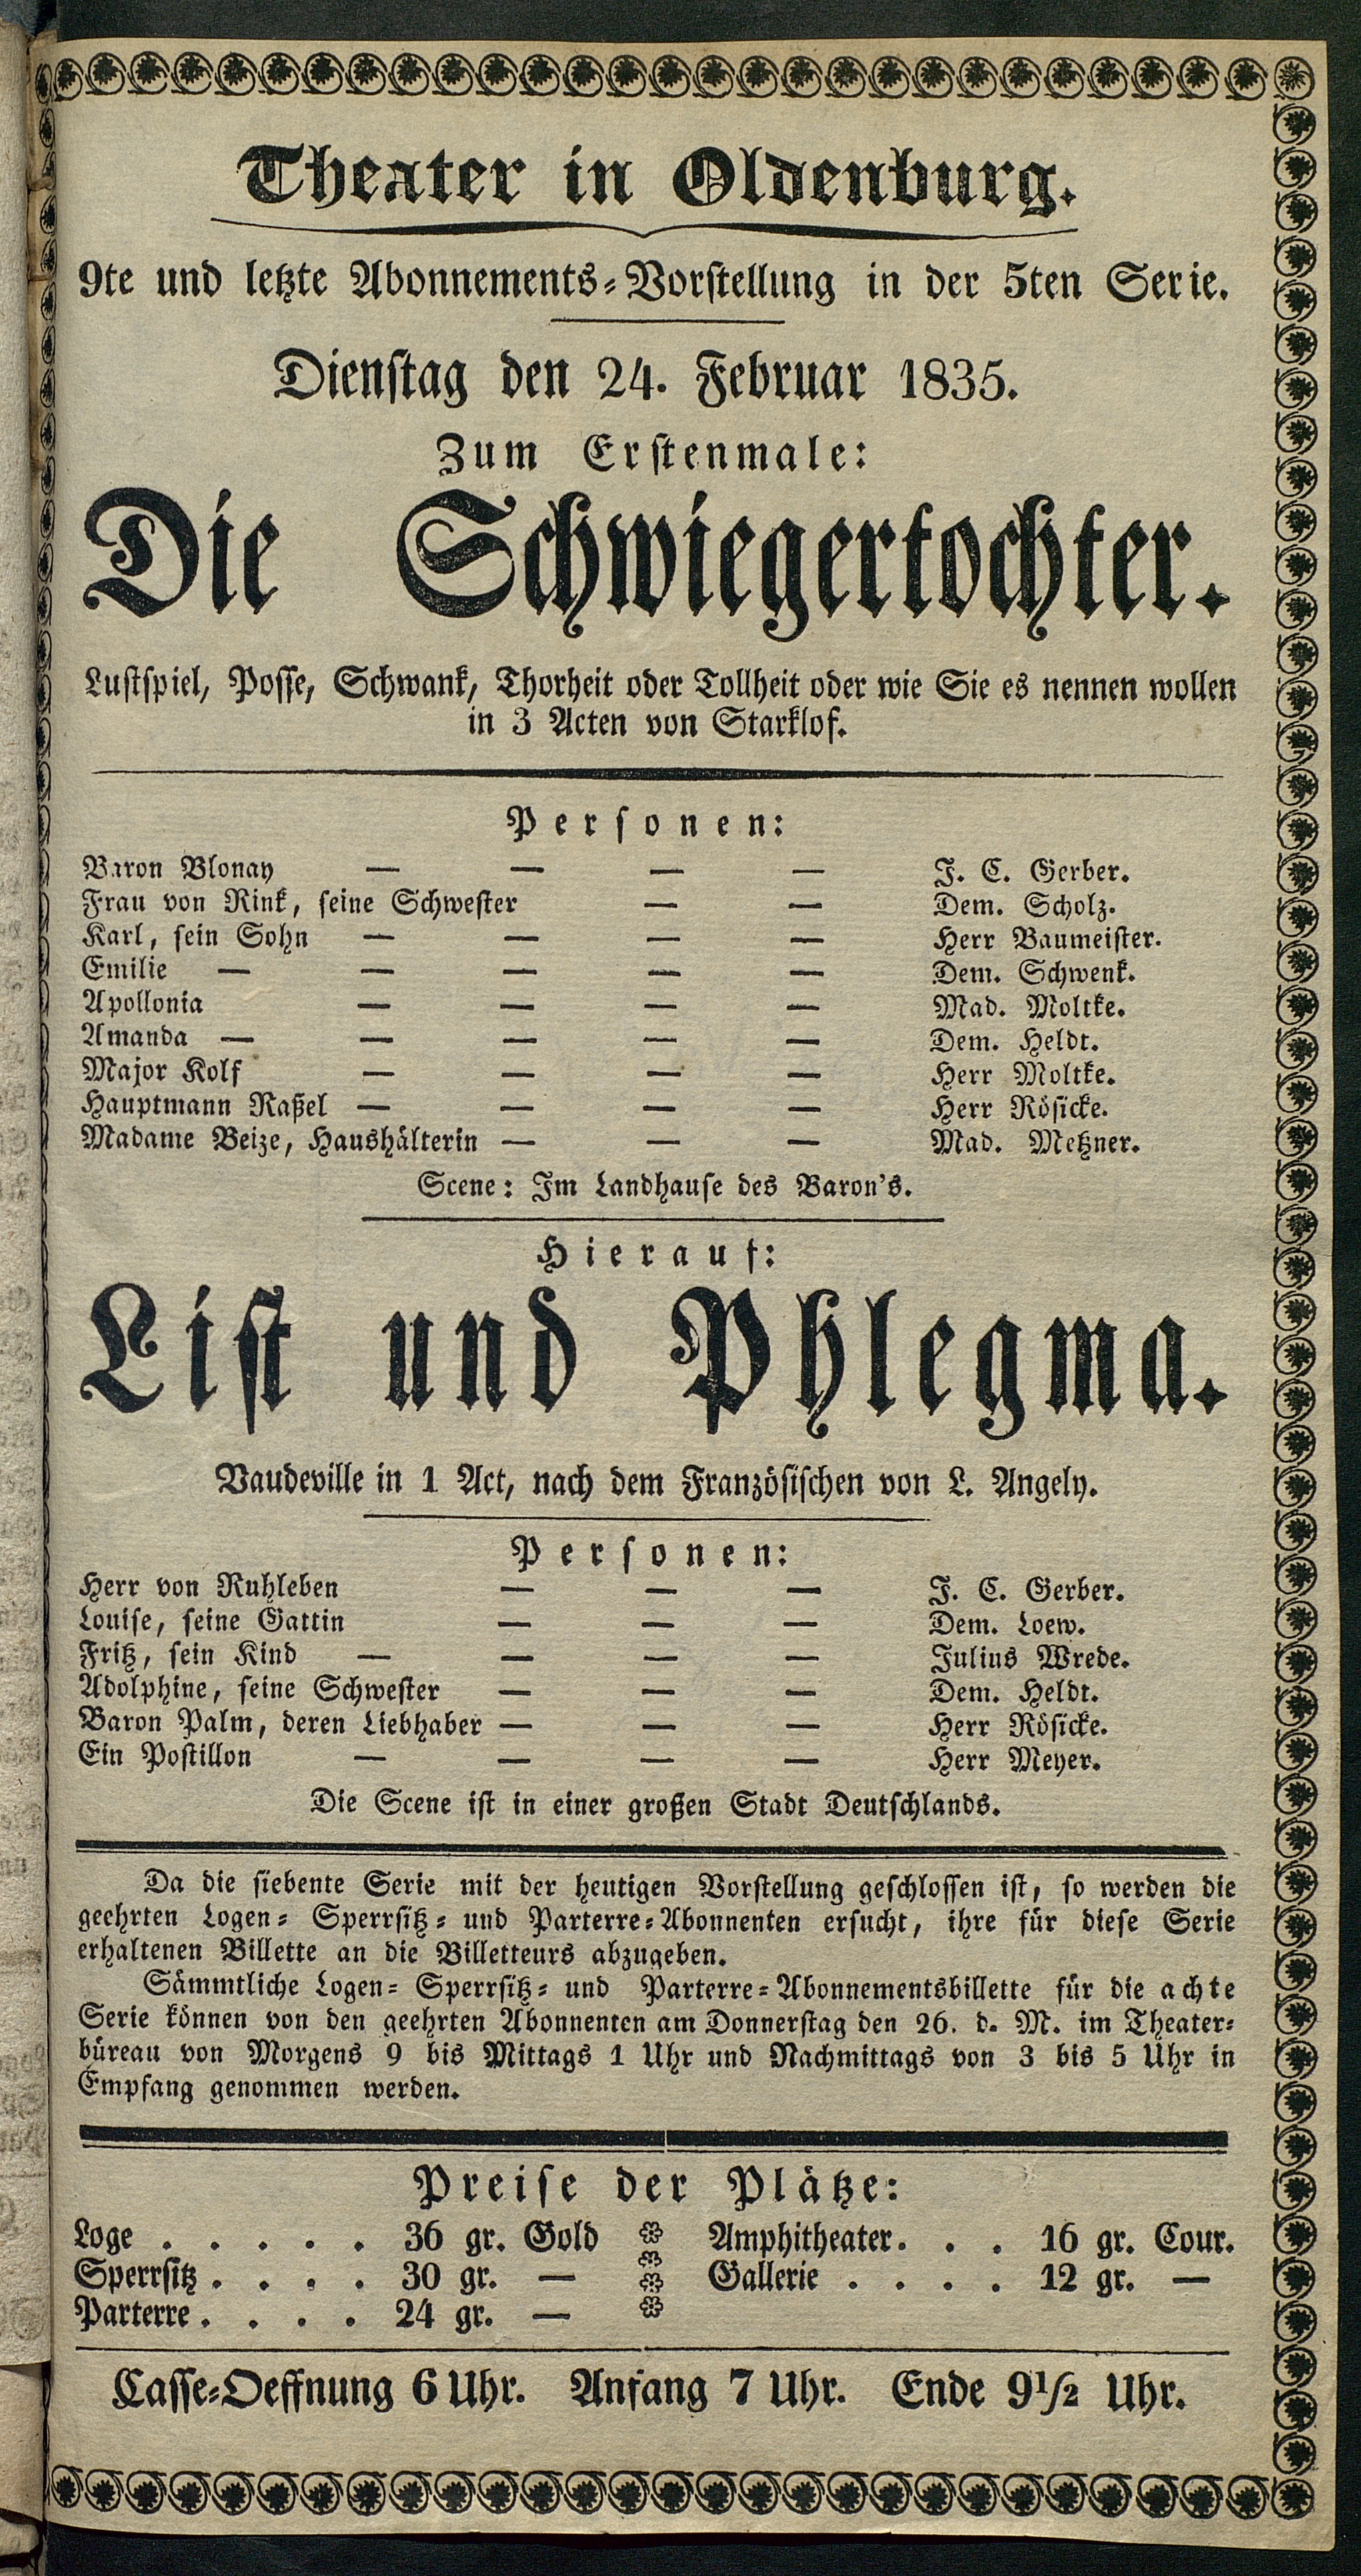 Theater in Oldenburg.
9te und letzte Abonnements-Vorstellung in der 5ten Serie.
Dienstag den 24. Februar 1835.
Zum Erstenmale:
Die Schwiegertochter.
Lustspiel, Posse, Schwank, Thorheit oder Tollheit oder wie Sie es nennen wollen
in 3 Acten von Starklof.
Personen:
Baron Blonay — — — — J. C. Gerber.
Frau von Rink, seine Schwester — — Dem. Scholz.
Karl, sein Sohn — — — — Herr Baumeister.
Emilie — — — — — Dem. Schwenk.
Apollonia — — — — Mad. Moltke.
Amanda — — — — — Dem. Heldt.
Major Kolf — — — — Herr Moltke.
Hauptmann Raßel — — — — Herr Rösicke.
Madame Beize, Haushälterin — — — Mad. Metzner.
Scene: Im Landhause des Baron's.
Hierauf:
List und Phlegma.
Vaudeville in 1 Act, nach dem Französischen von L. Angely.
Personen:
Herr von Ruhleben — — — J. C. Gerber.
Louise, seine Gattin — — — Dem. Loew.
Fritz, sein Kind — — — — Julius Wrede.
Adolphine, seine Schwester — — — Dem. Heldt.
Baron Palm, deren Liebhaber — — — Herr Rösicke.
Ein Postillon — — — — Herr Meyer.
Die Scene ist in einer großen Stadt Deutschlands.
Da die siebente Serie mit der heutigen Vorstellung geschlossen ist, so werden die
geehrten Logen- Sperrsitz- und Parterre-Abonnenten ersucht, ihre für diese Serie
erhaltenen Billette an die Billetteurs abzugeben.
Sämmtliche Logen- Sperrsitz- und Parterre-Abonnementsbillette für die achte
Serie können von den geehrten Abonnenten am Donnerstag den 26. d. M. im Theater-
büreau von Morgens 9 bis Mittags 1 Uhr und Nachmittags von 3 bis 5 Uhr in
Empfang genommen werden.
Preise der Plätze:
Loge . . . . . 36 gr. Gold
Sperrsitz . . . . 30 gr. —
Parterre . . . . 24 gr. —
Amphitheater . . . 16 gr. Cour.
Gallerie . . . . 12 gr. —
Casse-Oeffnung 6 Uhr. Anfang 7 Uhr. Ende 9½ Uhr.